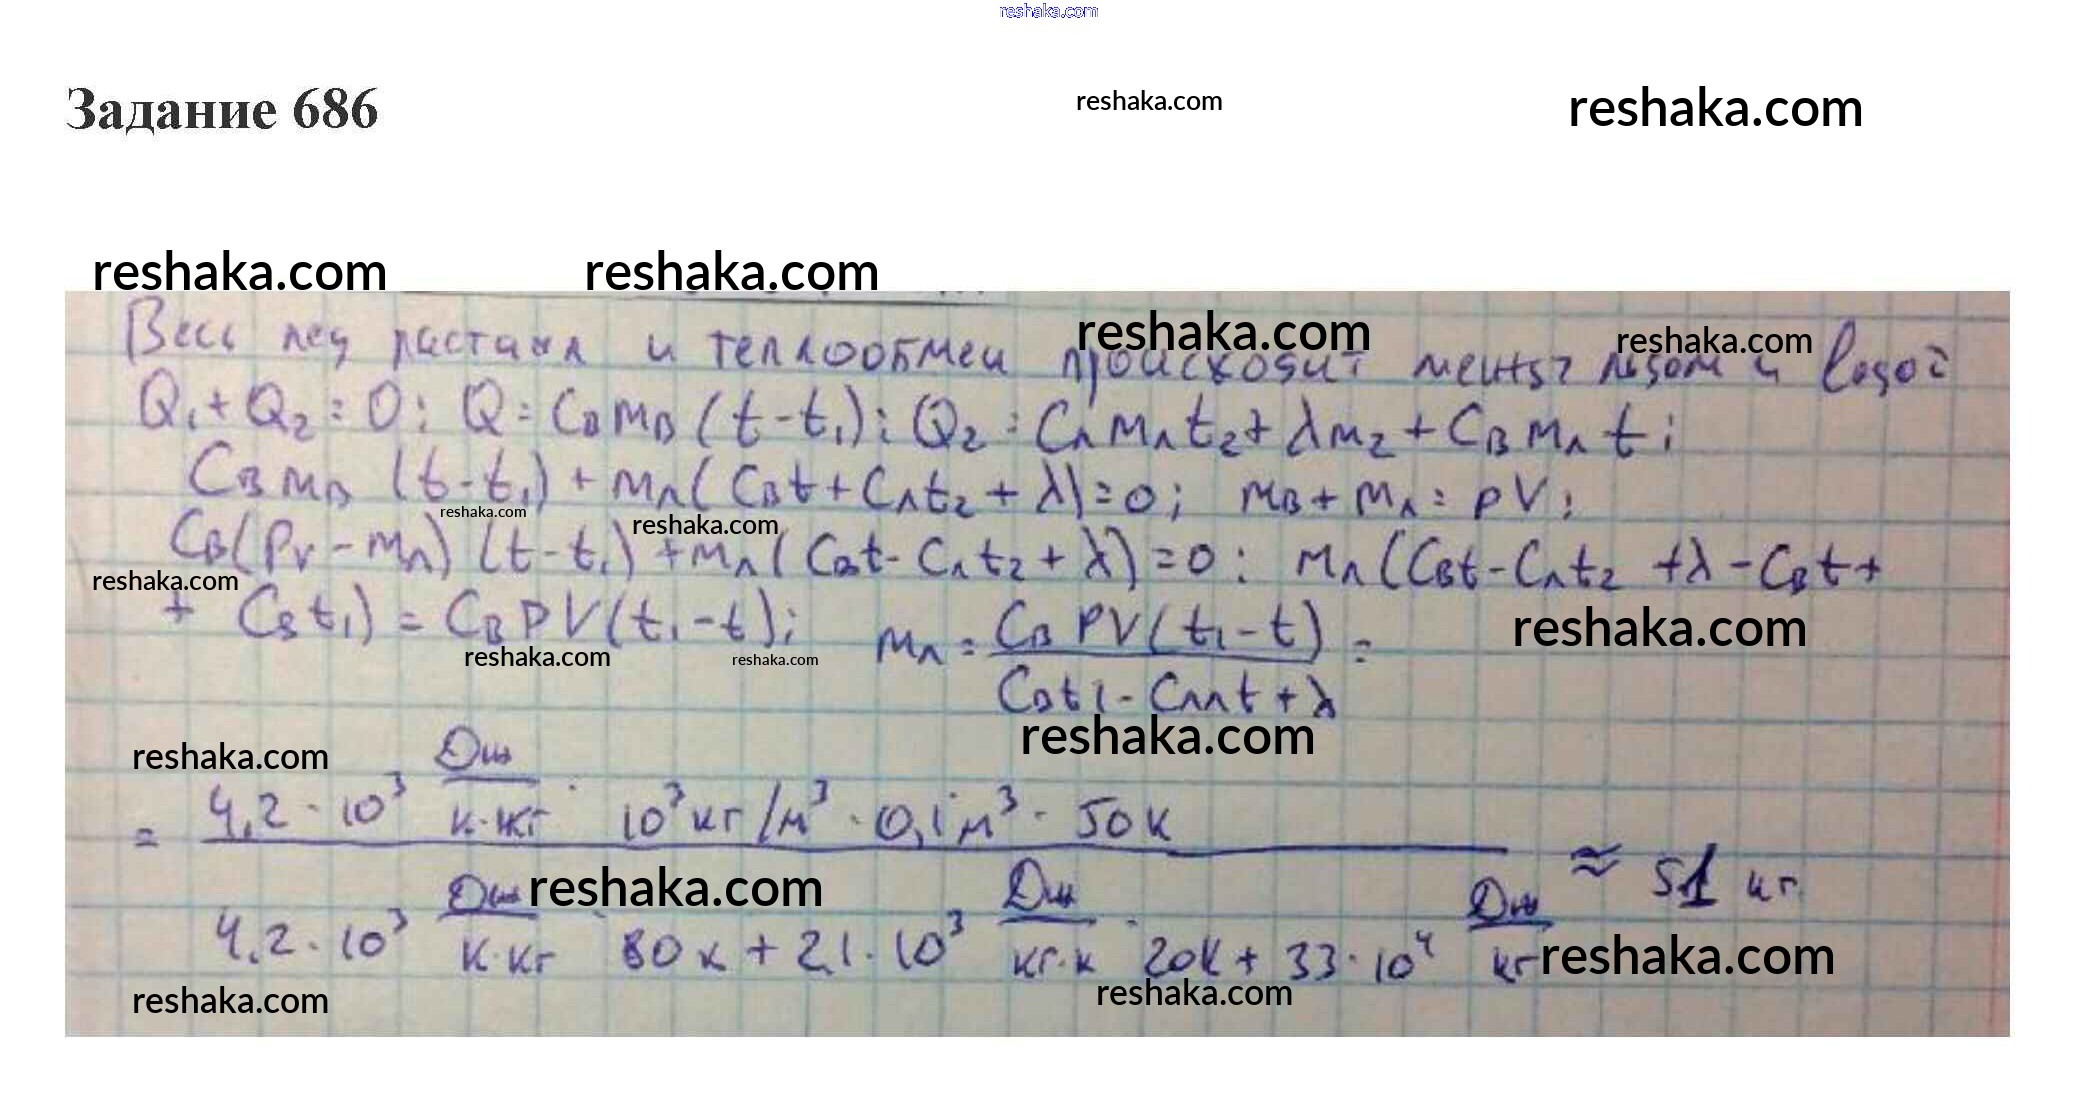 reshaka.com
Задание 686
reshaka.com
reshaka.com
reshaka.com
reshaka.com
Весь лед растаял и теплообмен происходит между льдом и водой
reshaka.com
reshaka.com
Q₁ + Q₂ = 0; Q = CвMв (t - t₁); Q₂ = CлMлt₂ + λm₂ + CвMлt;
CвMв (t - t₁) + Mл(Cвt + Cлt₂ + λ) = 0; Mв + Mл = PV;
reshaka.com
reshaka.com
Cв(PV - Mл) (t - t₁) + Mл(Cвt - Cлt₂ + λ) = 0; Mл(Cвt - Cлt₂ + λ - Cвt +
reshaka.com
+ Cвt₁) = CвPV(t₁ - t); Mл = CвPV(t₁ - t) / Cвt₁ - Cллt + λ =
reshaka.com
reshaka.com
reshaka.com
reshaka.com
reshaka.com
= 4,2 · 10³ Дж/К·кг · 10³ кг/м³ · 0,1 м³ · 50К
reshaka.com
4,2 · 10³ Дж/К·кг · 80К + 2,1 · 10³ Дж/кг·К · 20К + 33 · 10⁴ Дж/кг ≈ 51 кг
reshaka.com
reshaka.com
reshaka.com